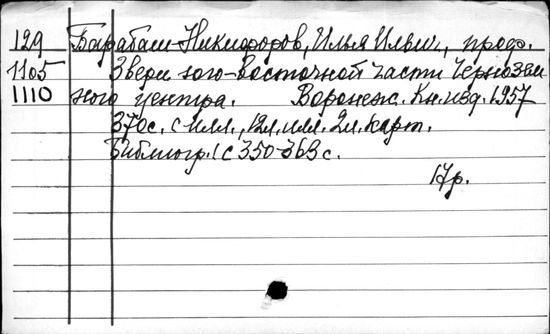 129 Барабаш-Никифоров, Илья Ильич, проф.
1105 Звери юго-восточной части Чернозем
1110 ного центра. Воронеж. Кн.изд. 1957
370с. с илл., 12л.илл. 2л.карт.
Библиогр.: с 350-363 с.
17р.